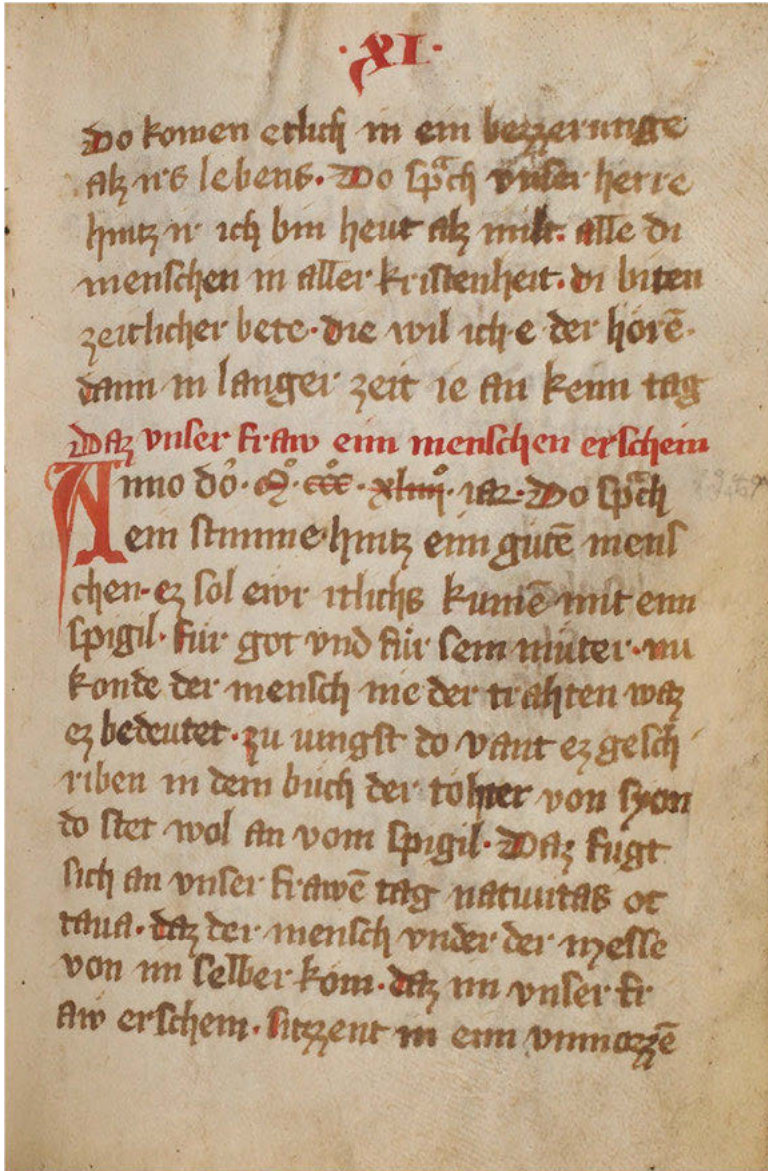 ·XI·
Do komen etlich in ein bezzerunge
alz irs lebens. Do sprach vnser herre
hintz ir ich bin heut alz milt. alle di
menschen in aller kristenheit. di biten
zeitlicher bete. die wil ich e der hörē.
dann in langer zeit ie an keim tag
Daz vnser fraw eim menschen erschein
Anno do. Mo. ccco. xliiijo. iar. Do sprach
ein stimme hintz eim gutē mens
chen. ez sol ewr itlichs kumē mit eim
spigil. für got vnd für sein muter. nu
konde der mensch nie der trahten waz
ez bedeutet. zu iungst do vant ez gesch
riben in dem buch der tohter von syon
do stet wol an vom spigil. Daz fugt
sich an vnser frawē tag natiuitas oc
taua. daz der mensch vnder der messe
von im selber kom. daz im vnser fr
aw erschein. sitzzent in eim vnmozzē